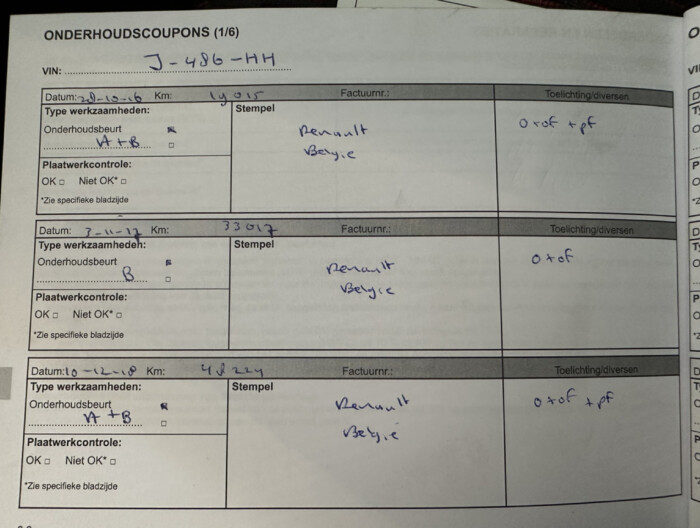 ONDERHOUDSCOUPONS (1/6)
VIN: J-486-HH
Datum: 28-10-16 Km: 19015 Factuurnr.: Toelichting/diversen
Type werkzaamheden: Stempel
Onderhoudsbeurt
A+B
Renault
Belgie
O+of +pf
Plaatwerkcontrole:
OK Niet OK*
*Zie specifieke bladzijde
Datum: 3-11-17 Km: 33017 Factuurnr.: Toelichting/diversen
Type werkzaamheden: Stempel
Onderhoudsbeurt
B
Renault
Belgie
O+of
Plaatwerkcontrole:
OK Niet OK*
*Zie specifieke bladzijde
Datum: 10-12-18 Km: Factuurnr.: Toelichting/diversen
Type werkzaamheden: Stempel
Onderhoudsbeurt
A+B
Renault
Belgie
O+of +pf
Plaatwerkcontrole:
OK Niet OK*
*Zie specifieke bladzijde